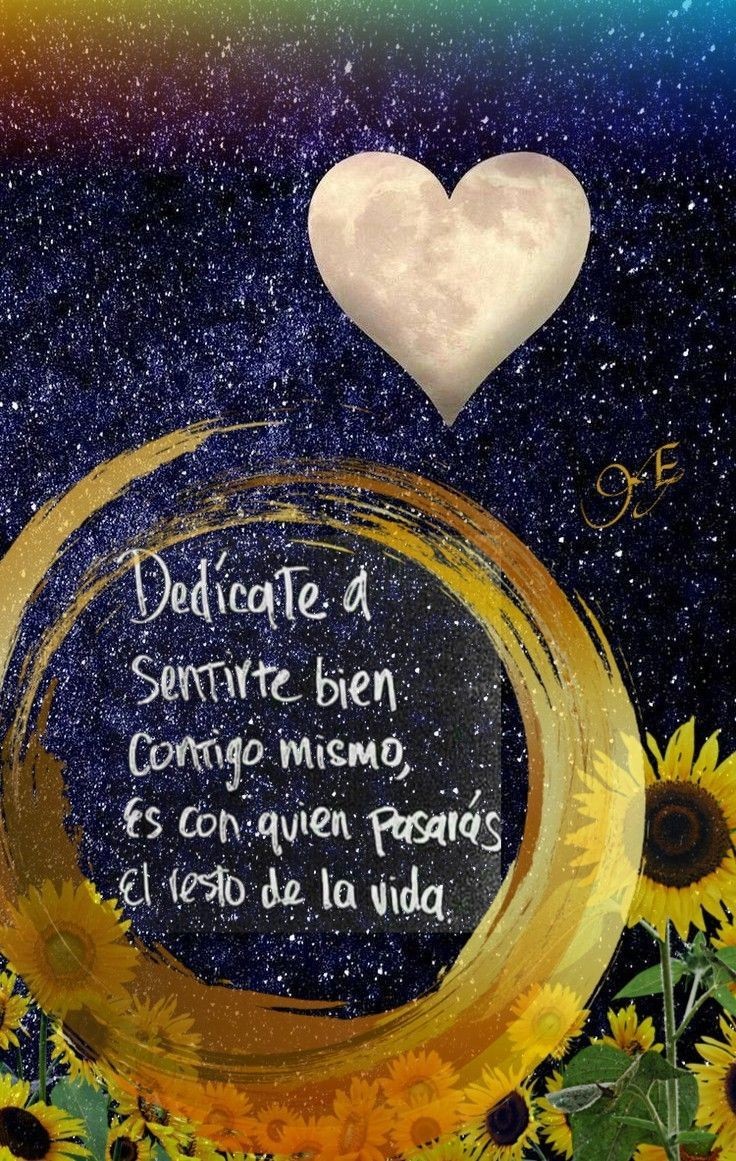 Dedícate a
sentirte bien
contigo mismo,
Es con quien pasarás
El resto de la vida.